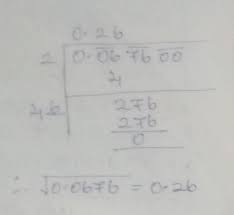 0.26
2 0.06 76 00
4
46 276
276
0
∴ √0.0676 = 0.26